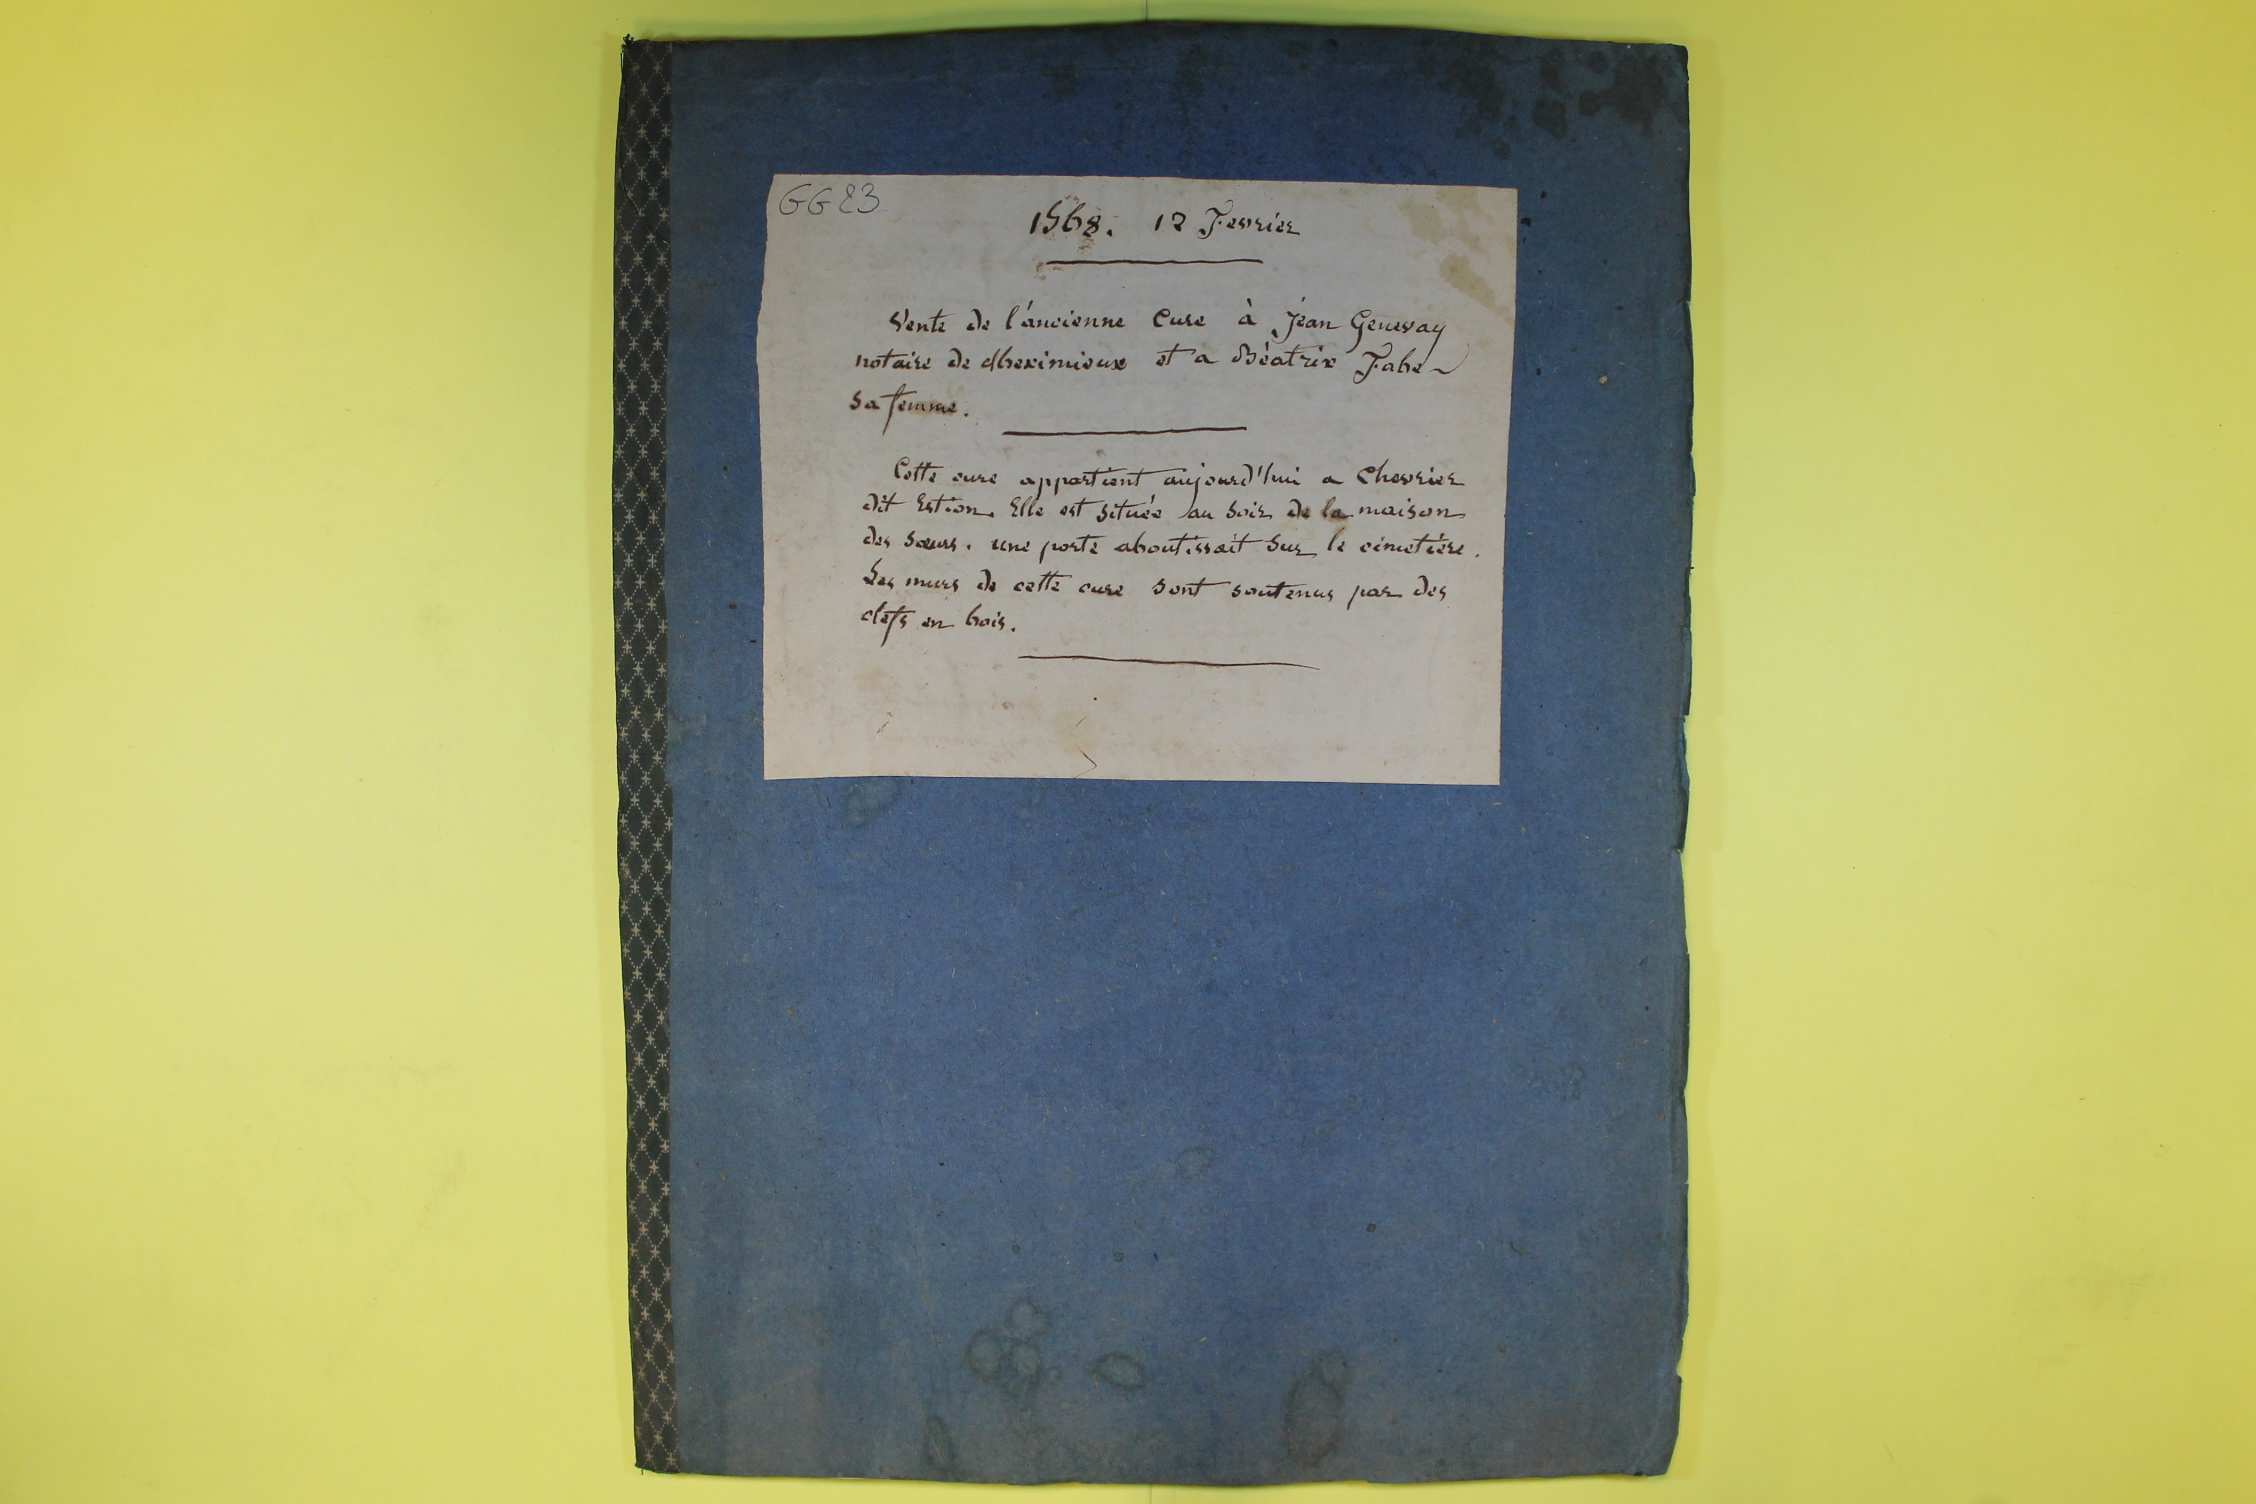 GG23
1568. 12 Fevrier
Vente de l'ancienne Cure à Jean Genevay
notaire de Meximieux et a Béatrix Fabe
sa femme.
Cette cure appartient aujourd'hui a Chevrier
dit Estion. Elle est située au soir de la maison
des sœurs. une porte aboutissait sur le cimetière.
Les murs de cette cure sont soutenus par des
clefs en bois.